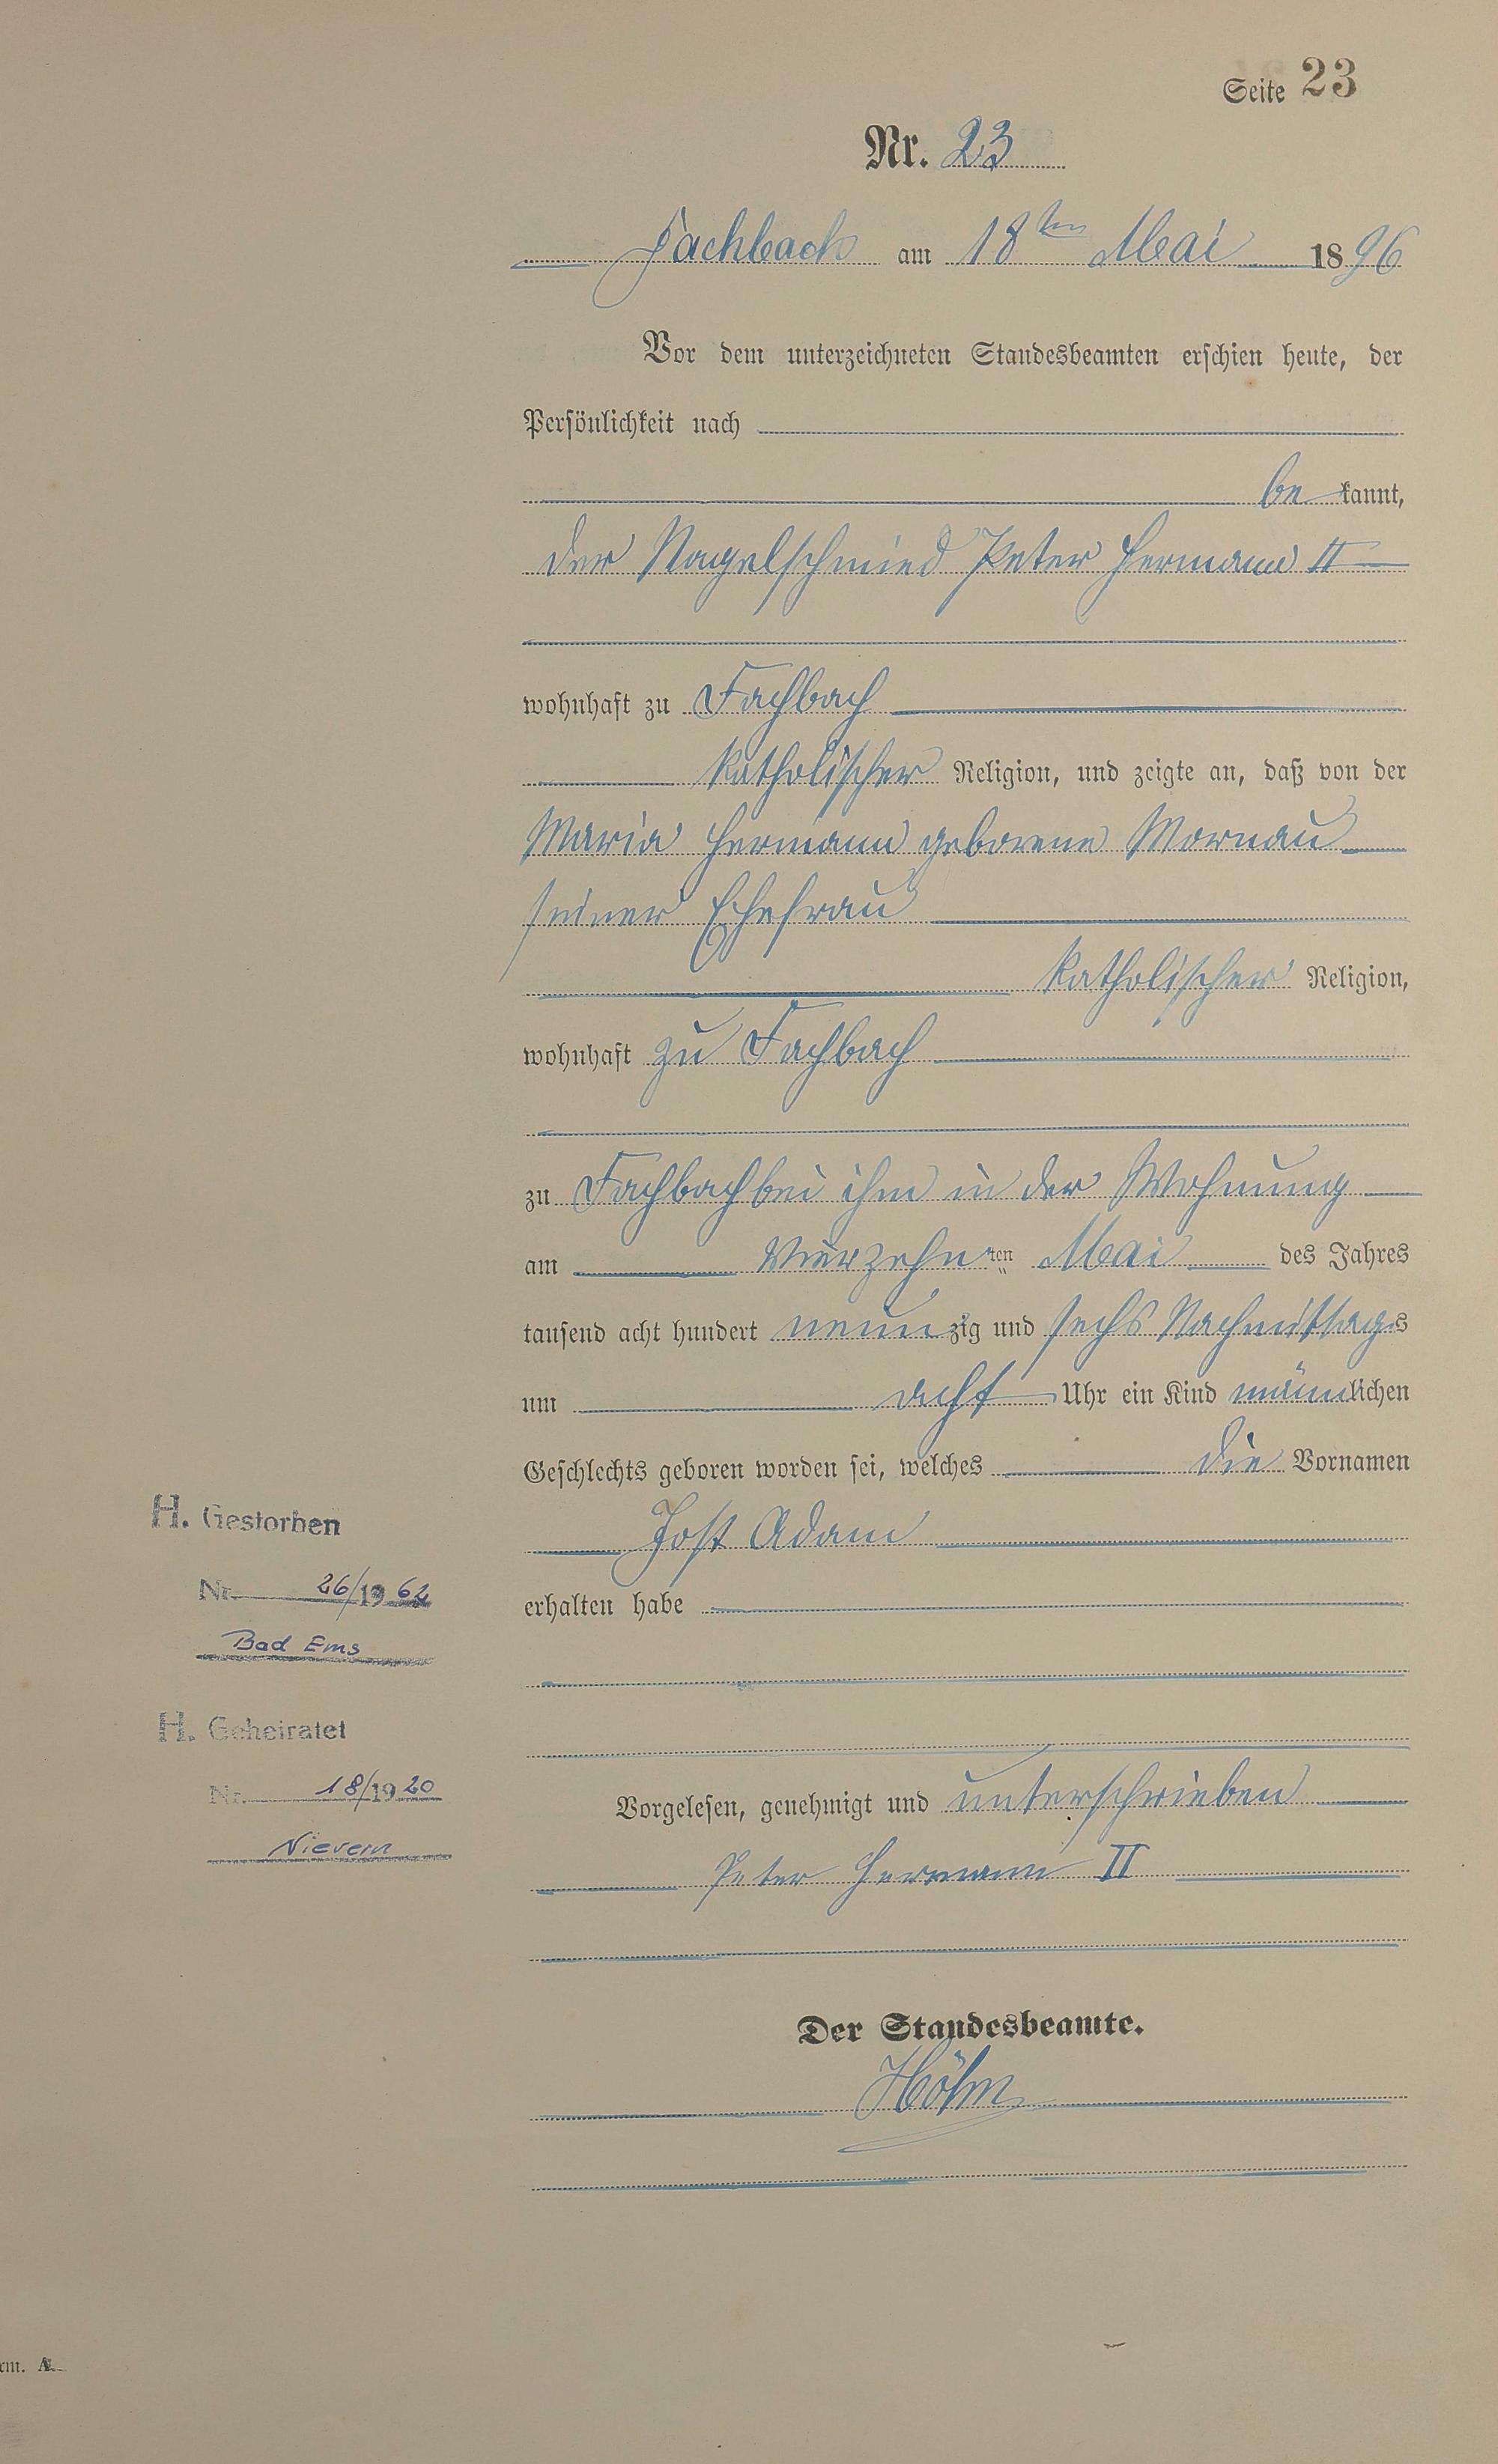 Seite 23
Nr. 23
Fachbach am 18ten Mai 1896
Vor dem unterzeichneten Standesbeamten erschien heute, der
Persönlichkeit nach
be kannt,
der Nagelschmied Peter Hermann II
wohnhaft zu Fachbach
katholischer Religion, und zeigte an, daß von der
Maria Hermann geborene Mornau
seiner Ehefrau
katholischer Religion,
wohnhaft zu Fachbach
zu Fachbach bei ihm in der Wohnung
am vierzehnten Mai des Jahres
tausend acht hundert neunzig und sechs Nachmittags
um acht Uhr ein Kind männlichen
Geschlechts geboren worden sei, welches die Vornamen
Jost Adam
erhalten habe
H. Gestorben
Nr. 26/1962
Bad Ems
H. Geheiratet
Nr. 18/1920
Nievern
Vorgelesen, genehmigt und unterschrieben
Peter Hermann II
Der Standesbeamte.
rm. A.